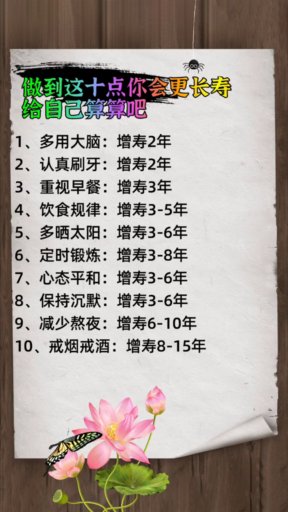 做到这十点你会更长寿
给自己算算吧
1、多用大脑：增寿2年
2、认真刷牙：增寿2年
3、重视早餐：增寿3年
4、饮食规律：增寿3-5年
5、多晒太阳：增寿3-6年
6、定时锻炼：增寿3-8年
7、心态平和：增寿3-6年
8、保持沉默：增寿3-6年
9、减少熬夜：增寿6-10年
10、戒烟戒酒：增寿8-15年